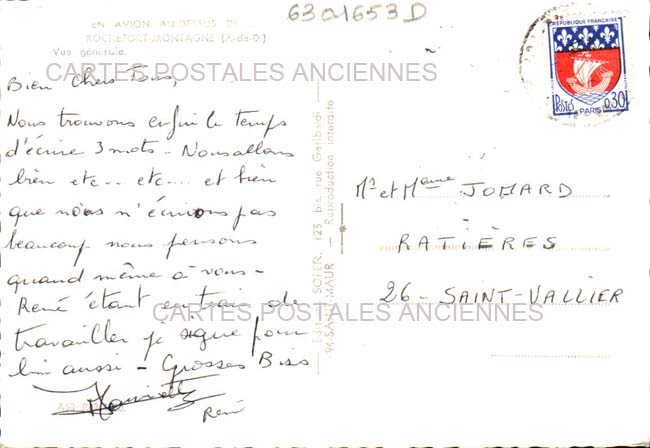 63a1653D
EN AVION AU-DESSUS DE
ROCHEFORT-MONTAGNE (P.-de-D.)
Vue générale.
CARTES POSTALES ANCIENNES
Bien Chers Tous,
Nous trouvons enfin le temps
d'écrire 3 mots - Nous allons
bien etc... etc.... et bien
que nous n'écrivons pas
beaucoup nous pensons
quand même à vous -
René étant en train de
travailler je signe pour
lui aussi - Grosses Bises
Henriette
René
SOFER, 125 bis, rue Garibaldi
94-SAINT-MAUR - Reproduction interdite
RÉPUBLIQUE FRANÇAISE
POSTES
0,30
PARIS
Mr et Mme JOMARD
RATIÈRES
26 - SAINT-VALLIER
CARTES POSTALES ANCIENNES